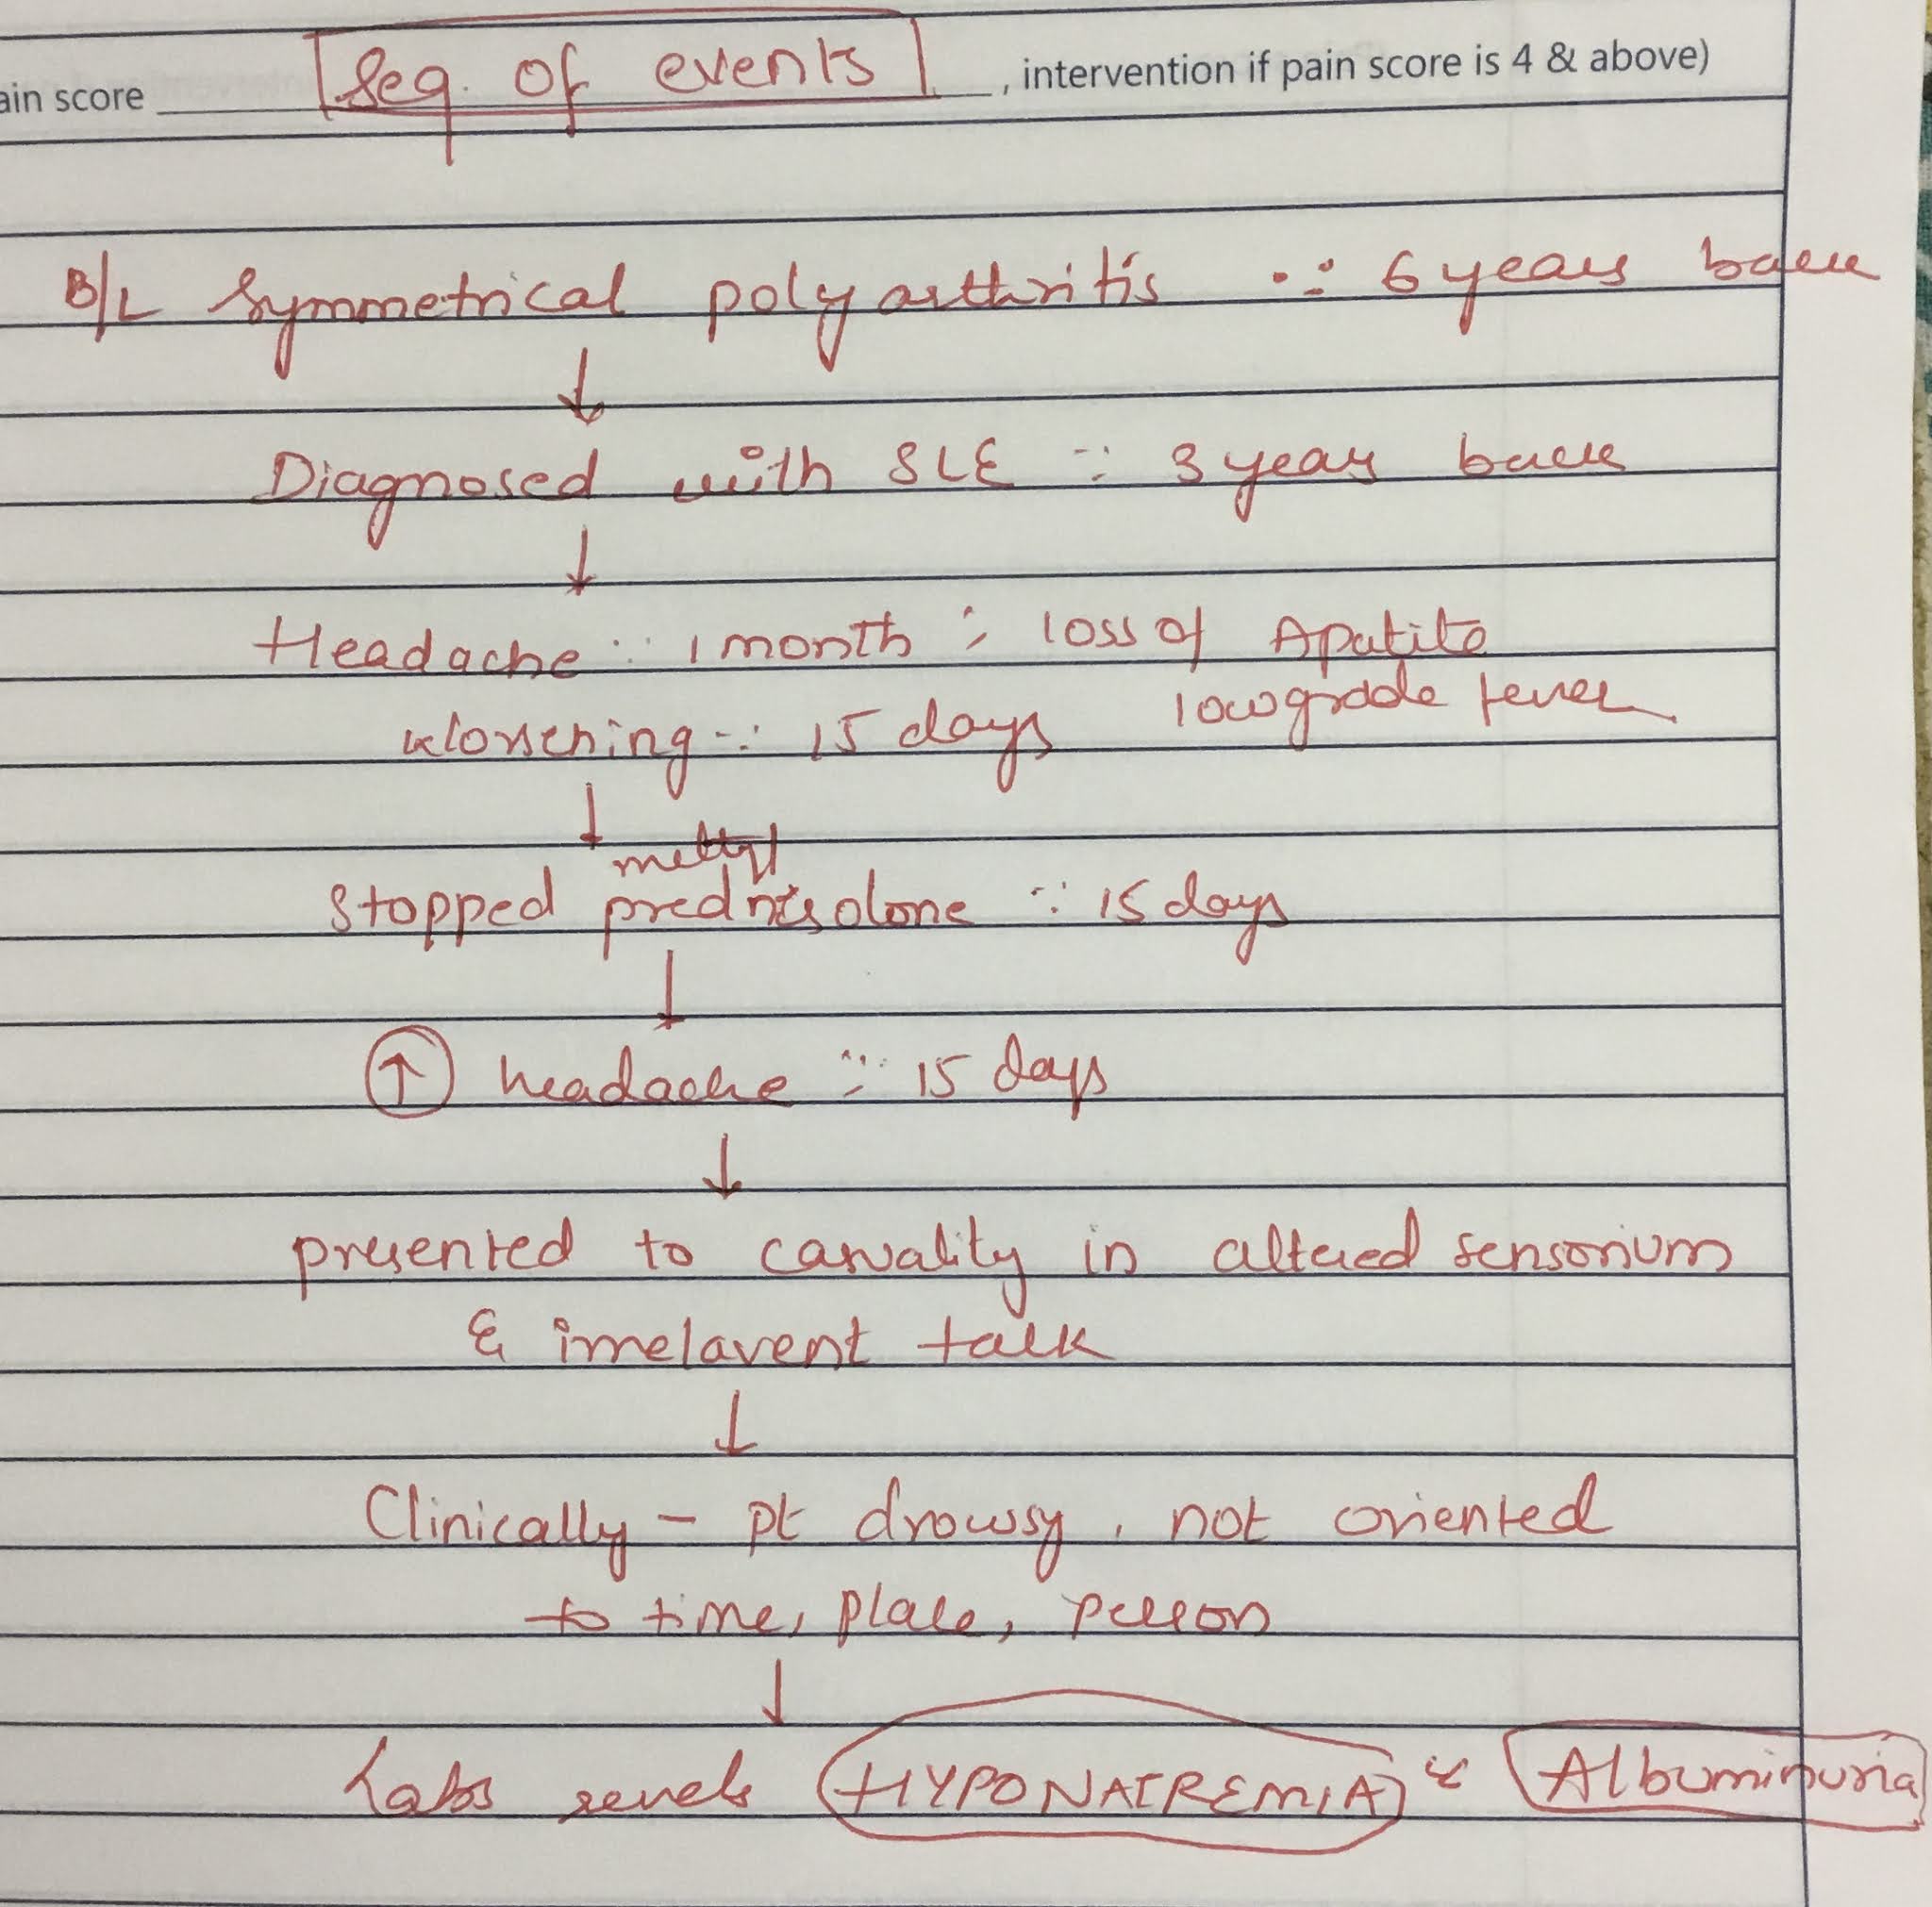 Seq. of events
ain score ________ , intervention if pain score is 4 & above)
B/L Symmetrical polyarthritis ∵ 6 years back
↓
Diagnosed with SLE ∵ 3 years back
↓
Headache ∵ 1 month ; loss of Apatite
worsening ∵ 15 days low grade fever
↓
methyl
stopped prednisolone ∵ 15 days
↓
↑ headache ∵ 15 days
↓
presented to casuality in altered sensorium
& irrelavent talk
↓
Clinically - pt drowsy, not oriented
to time, place, person
↓
Labs reveals HYPONATREMIA & Albuminuria